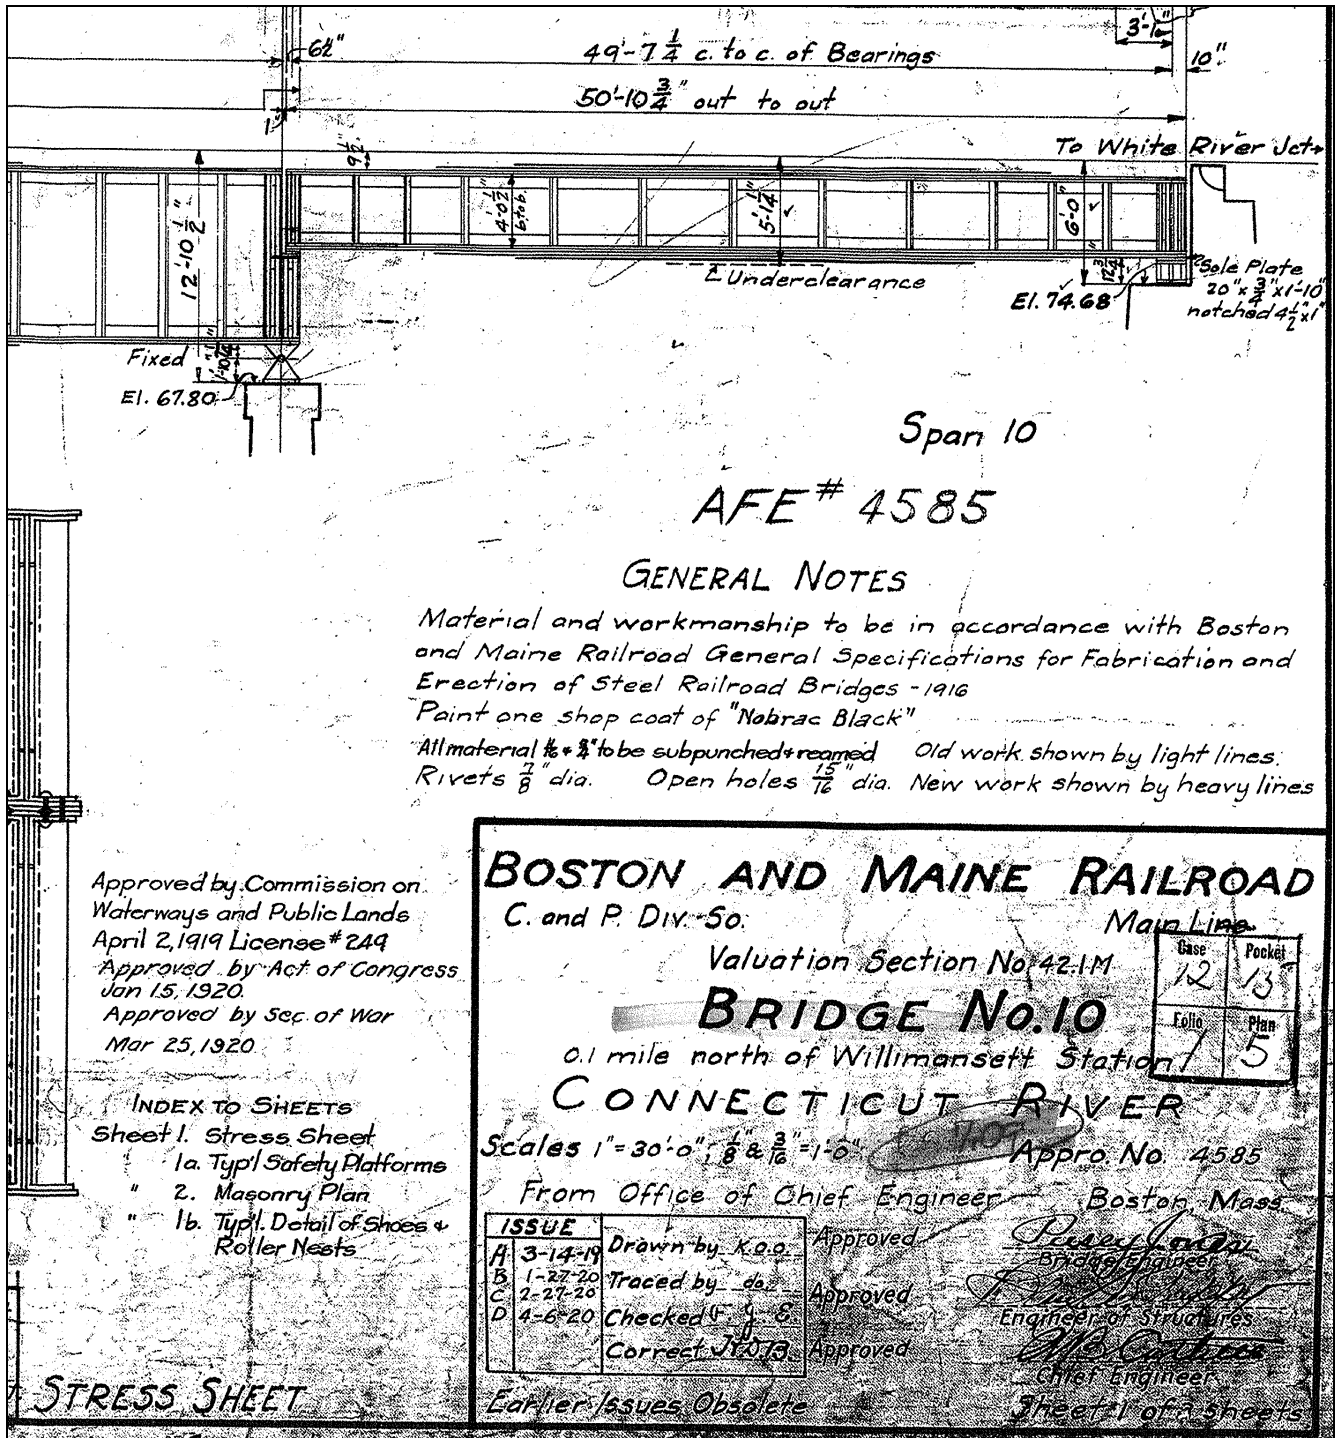 3'-1"
6½"
49'-7 ¼ c. to c. of Bearings
10"
50'-10 ¾" out to out
1"
To White River Jct.
9½"
12'-10 ½"
4'-0½"
b. to b.
5'-1¼"
6'-0"
Underclearance
12¾"
El. 74.68
Sole Plate
20" x ¾" x 1'-10"
notched 4½" x 1"
Fixed
El. 67.80
Span 10
AFE # 4585
GENERAL NOTES
Material and workmanship to be in accordance with Boston
and Maine Railroad General Specifications for Fabrication and
Erection of Steel Railroad Bridges - 1916
Paint one shop coat of "Nobrac Black"
All material to be subpunched & reamed Old work shown by light lines.
Rivets ⅞" dia. Open holes 15/16" dia. New work shown by heavy lines
Approved by Commission on
Waterways and Public Lands
April 2, 1919 License # 249
Approved by Act of Congress
Jan 15, 1920.
Approved by Sec. of War
Mar 25, 1920
INDEX TO SHEETS
Sheet 1. Stress Sheet
1a. Typ'l Safety Platforms
" 2. Masonry Plan
" 1b. Typ'l. Detail of Shoes &
Roller Nests
STRESS SHEET
BOSTON AND MAINE RAILROAD
C. and P. Div.-So. Main Line
Valuation Section No. 42.1M
BRIDGE No. 10
0.1 mile north of Willimansett Station
CONNECTICUT RIVER
Case 12 Pocket 15
Folio 1 Plan 5
Scales 1" = 30'-0"; ⅛" & 3/16" = 1'-0"
7.07
Appro. No. 4585
From Office of Chief Engineer Boston, Mass.
ISSUE
A 3-14-19
B 1-27-20
C 2-27-20
D 4-6-20
Drawn by K.O.O.
Traced by do.
Checked
Correct
Approved
Bridge Engineer
Approved
Engineer of Structures
Approved
Chief Engineer
Earlier Issues Obsolete
Sheet #1 of 2 sheets